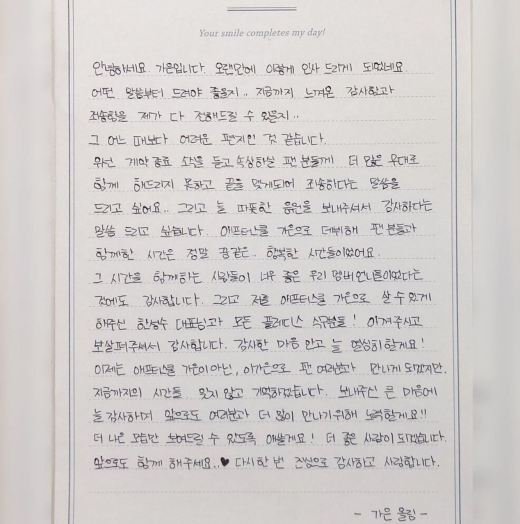 Your smile completes my day!
안녕하세요 가은입니다. 오랜만에 이렇게 인사 드리게 되었네요
어떤 말씀부터 드려야 좋을지.. 지금까지 느껴온 감사함과
죄송함을 제가 다 전해드릴 수 있을지..
그 어느 때보다 어려운 편지인 것 같습니다.
우선 계약 종료 소식을 듣고 속상하실 팬 분들께 더 많은 무대로
함께 해드리지 못하고 끝을 맺게되어 죄송하다는 말씀을
드리고 싶어요.. 그리고 늘 따뜻한 응원을 보내주셔서 감사하다는
말씀 드리고 싶습니다. 애프터스쿨 가은으로 데뷔해 팬 분들과
함께한 시간은 정말 꿈같은.. 행복한 시간들이었어요.
그 시간을 함께하는 사람들이 너무 좋은 우리 멤버 언니들이었다는
것에도 감사합니다. 그리고 저를 애프터스쿨 가은으로 살 수 있게
해주신 한성수 대표님과 모든 플레디스 식구분들! 아껴주시고
보살펴주셔서 감사합니다. 감사한 마음 안고 늘 열심히할게요!
이제는 애프터스쿨 가은이 아닌, 이가은으로 팬 여러분과 만나게 되었지만,
지금까지의 시간들 잊지 않고 기억하겠습니다. 보내주신 큰 마음에
늘 감사하며 앞으로도 여러분과 더 많이 만나기위해 노력할게요!!
더 나은 모습만 보여드릴 수 있도록 애쓸게요! 더 좋은 사람이 되겠습니다.
앞으로도 함께 해주세요..♥ 다시 한 번 진심으로 감사하고 사랑합니다.
- 가은 올림 -